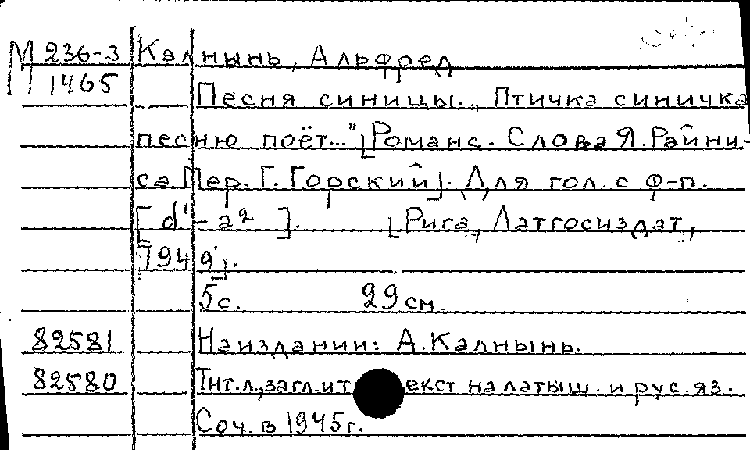 М 236-3 Калнынь, Альфред
1465 Песня синицы. „Птичка синичка
песню поёт..." [Романс. Слова Я. Райни-
са Пер. Г. Горский]. Для гол. с ф-п.
[d' - a²] [Рига, Латгосиздат,
1949].
5с. 29 см.
82581 На издании: А. Калнынь.
82580 Тит. л., загл. и т екст на латыш. и рус. яз.
Соч. в 1945 г.